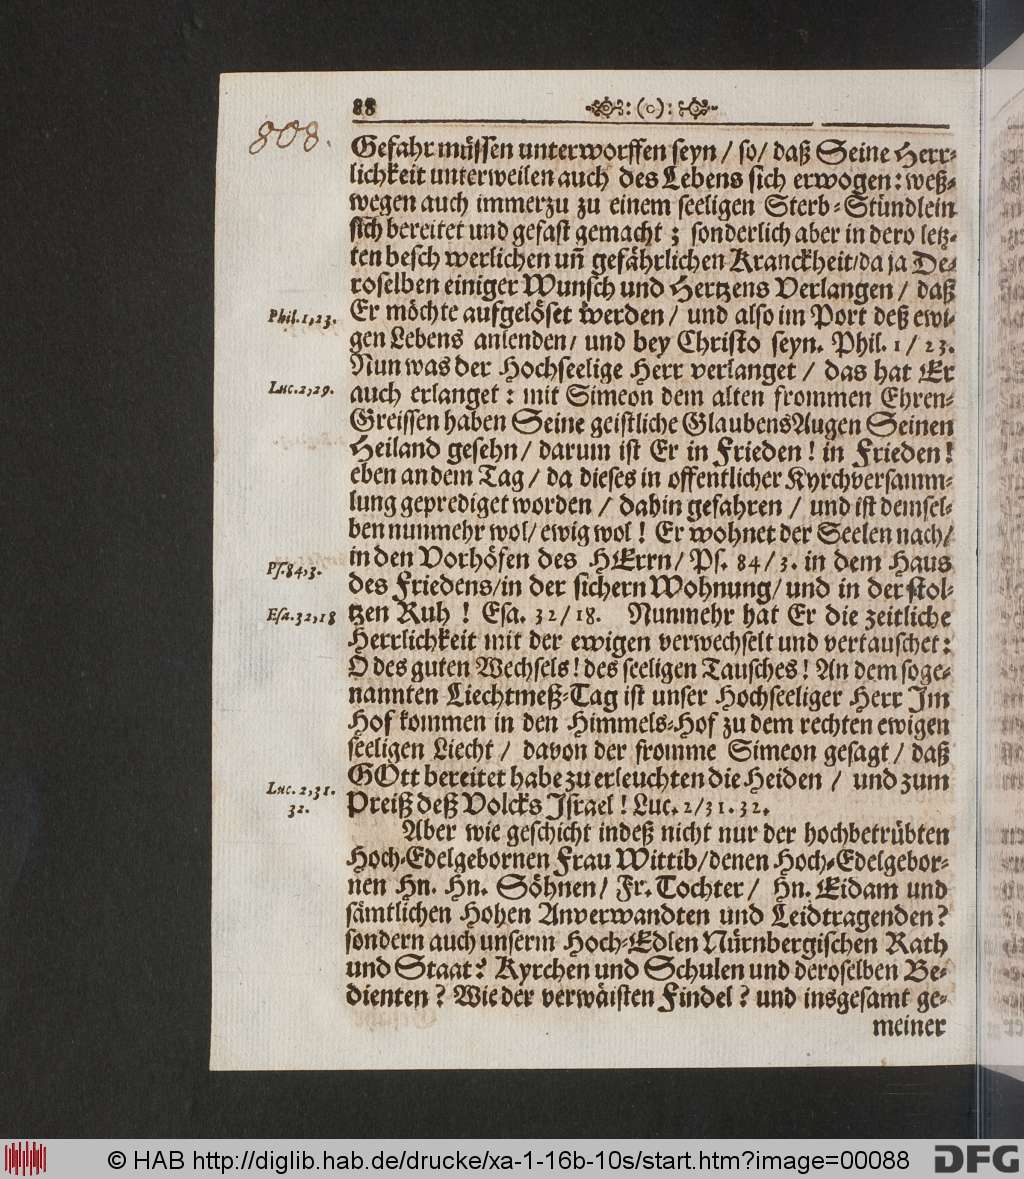 88 :(o):
808.
Gefahr müssen unterworffen seyn / so / daß Seine Herr-
lichkeit unterweilen auch des Lebens sich erwogen: weß-
wegen auch immerzu zu einem seeligen Sterb-Stündlein
sich bereitet und gefast gemacht; sonderlich aber in dero letz-
ten beschwerlichen uñ gefährlichen Kranckheit / da ja De-
roselben einiger Wunsch und Hertzens Verlangen / daß
Phil. 1, 23. Er möchte aufgelöset werden / und also im Port deß ewi-
gen Lebens anlenden / und bey Christo seyn. Phil. 1 / 23.
Nun was der Hochseelige Herr verlanget / das hat Er
Luc. 2, 29. auch erlanget: mit Simeon dem alten frommen Ehren-
Greissen haben Seine geistliche GlaubensAugen Seinen
Heiland gesehn / darum ist Er in Frieden! in Frieden!
eben an dem Tag / da dieses in offentlicher Kyrchversamm-
lung geprediget worden / dahin gefahren / und ist demsel-
ben nunmehr wol / ewig wol! Er wohnet der Seelen nach /
Ps. 84, 3. in den Vorhöfen des HErrn / Ps. 84 / 3. in dem Haus
des Friedens / in der sichern Wohnung / und in der stol-
Esa. 32, 18 tzen Ruh! Esa. 32 / 18. Nunmehr hat Er die zeitliche
Herrlichkeit mit der ewigen verwechselt und vertauschet:
O des guten Wechsels! des seeligen Tausches! An dem soge-
nannten Liechtmeß-Tag ist unser Hochseeliger Herr Im
Hof kommen in den Himmels-Hof zu dem rechten ewigen
seeligen Liecht / davon der fromme Simeon gesagt / daß
GOtt bereitet habe zu erleuchten die Heiden / und zum
Luc. 2, 31. 32. Preiß deß Volcks Israel! Luc. 2 / 31. 32.
Aber wie geschicht indeß nicht nur der hochbetrübten
Hoch-Edelgebornen Frau Wittib / denen Hoch-Edelgebor-
nen Hn. Hn. Söhnen / Fr. Tochter / Hn. Eidam und
sämtlichen Hohen Anverwandten und Leidtragenden?
sondern auch unserm Hoch-Edlen Nürnbergischen Rath
und Staat? Kyrchen und Schulen und deroselben Be-
dienten? Wie der verwäisten Findel? und insgesamt ge-
meiner
© HAB http://diglib.hab.de/drucke/xa-1-16b-10s/start.htm?image=00088 DFG